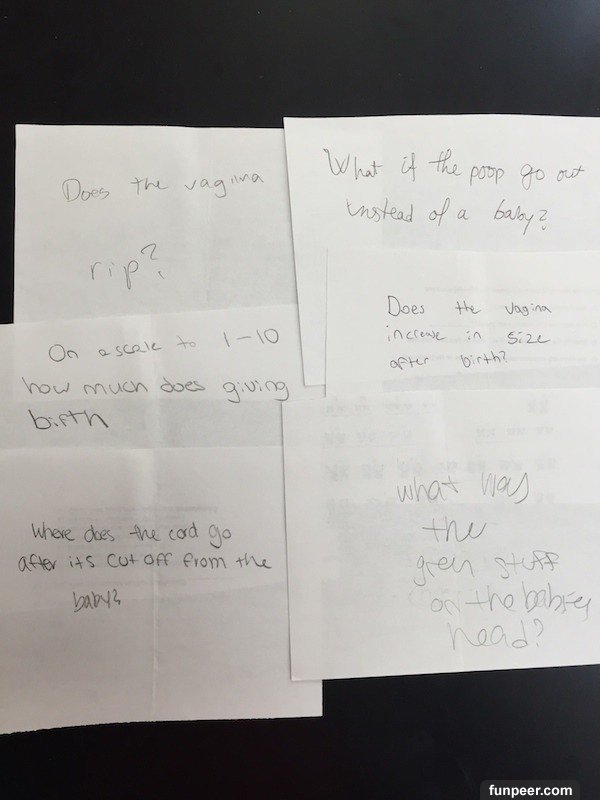 Does the vagina
rip?
What if the poop go out
instead of a baby?
On a scale to 1-10
how much does giving
birth
Does the vagina
increase in size
after birth?
Where does the cord go
after its cut off from the
baby?
what was
the
green stuff
on the babies
head?
funpeer.com